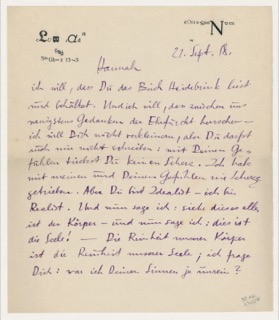 N
21. Sept. 18.
Hannah
ich will, dass Du das Buch Heidebrink liest
und behältst. Und ich will, dass zwischen uns
wenigstens Gedanken der Ehrfurcht herrschen –
ich will Dich nicht verkleinern, aber Du darfst
auch mir nicht schreiben: mit Deinen Ge-
fühlen triebest Du keinen Scherz. Ich habe
mit meinen und Deinen Gefühlen nie Scherz
getrieben. Aber Du bist Idealist – ich bin
Realist. Und nun sage ich: siehe dieses alles
ist der Körper – und nun sage ich: dies ist
die Seele! – Die Reinheit unserer Körper
ist die Reinheit unserer Seele; ich frage
Dich: war ich Deinen Sinnen je unrein?